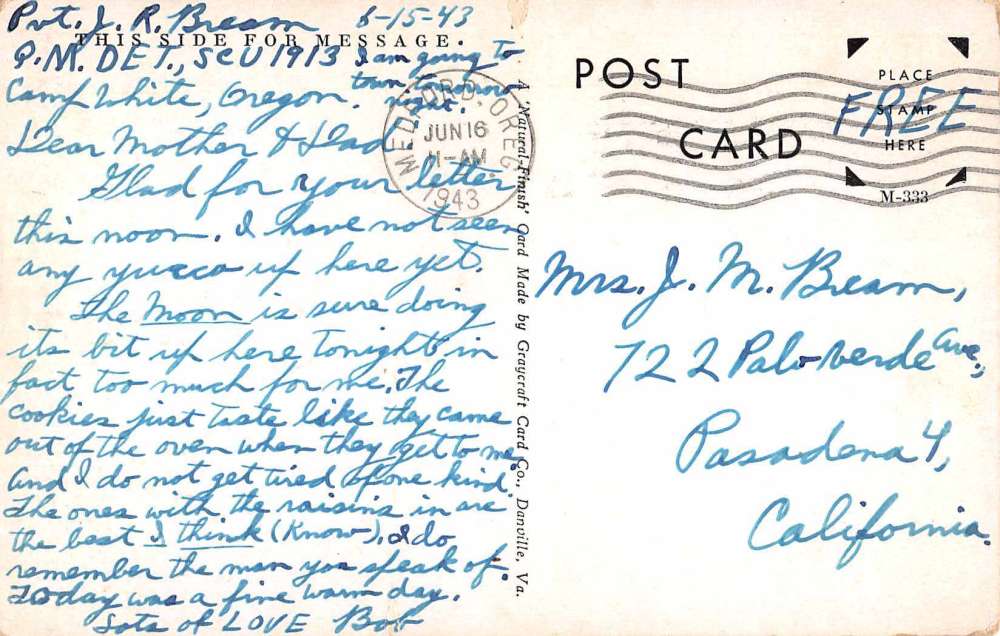 Pvt. J. R. Bream 6-15-43
THIS SIDE FOR MESSAGE.
P.M. DET., SCU 1913
Camp White, Oregon.
I am going to
town tomorrow
night.
Dear Mother & Dad
Glad for your letter
this noon. I have not seen
any yucca up here yet.
The Moon is sure doing
its bit up here tonight, in
fact too much for me. The
cookies just taste like they came
out of the oven when they get to me,
and I do not get tired of one kind.
The ones with the raisins in are
the best I think (Know). I do
remember the man you speak of.
Today was a fine warm day.
Lots of LOVE Bob
MEDFORD, OREG.
JUN 16
11-AM
1943
A 'Natural-Finish' Card Made by Graycraft Card Co., Danville, Va.
POST CARD
PLACE
STAMP
HERE
FREE
M-333
Mrs. J. M. Bream,
722 Palo Verde Ave.,
Pasadena 4,
California.